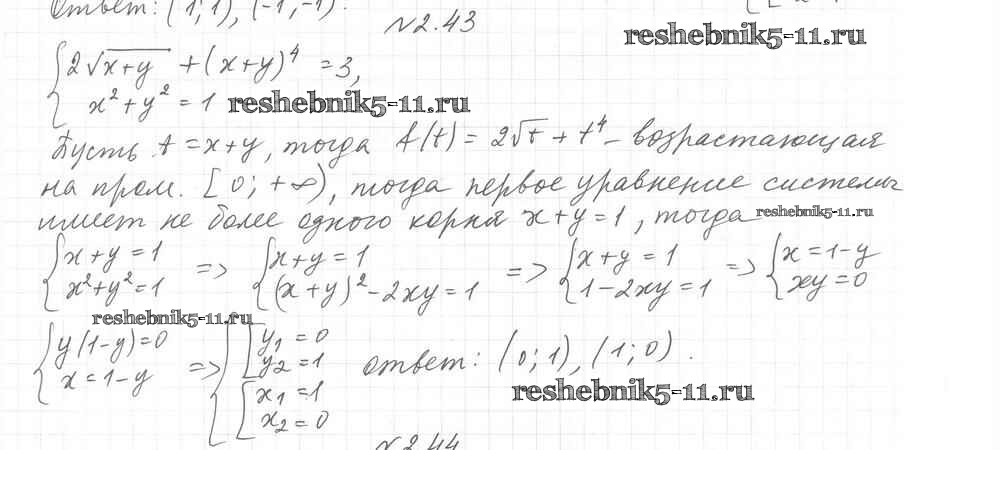 Ответ: (1; 1), (-1, -1).
№2.43
reshebnik5-11.ru
{2√(x+y) + (x+y)⁴ = 3,
x² + y² = 1 reshebnik5-11.ru
Пусть t = x+y, тогда f(t) = 2√t + t⁴ – возрастающая
на пром. [0; +∞), тогда первое уравнение системы
имеет не более одного корня x+y=1, тогда reshebnik5-11.ru
{x+y=1 x²+y²=1 => {x+y=1 (x+y)²-2xy=1 => {x+y=1 1-2xy=1 => {x=1-y xy=0
reshebnik5-11.ru
{y(1-y)=0 x=1-y => {[y₁=0 y₂=1 [x₁=1 x₂=0 ответ: (0; 1), (1; 0).
reshebnik5-11.ru
№2.44